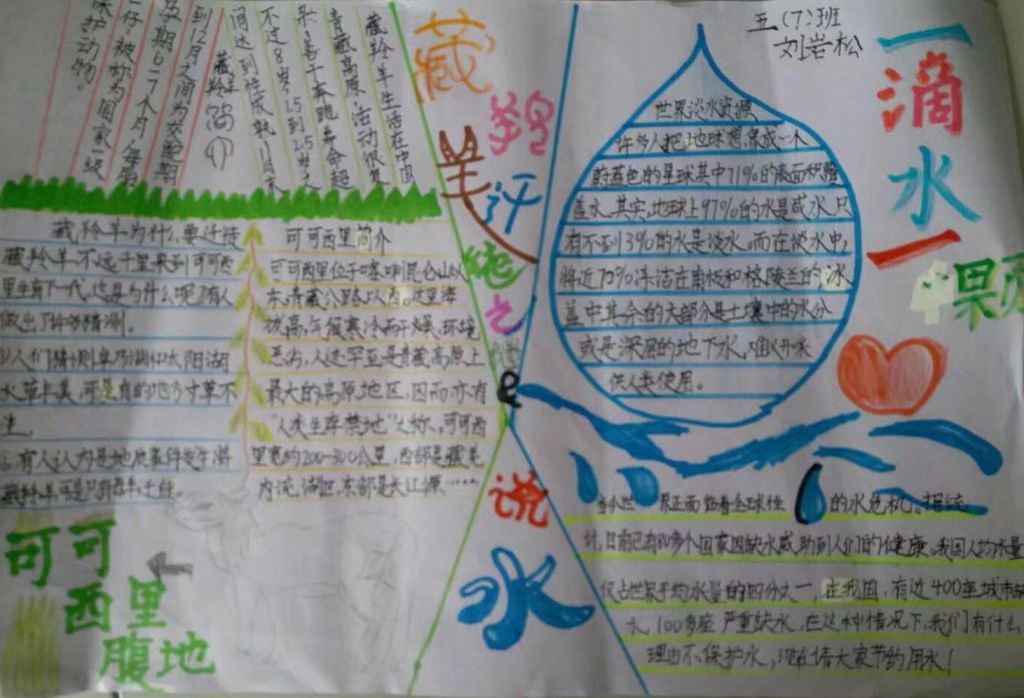 五（7）班
刘岩松
一滴水
一颗
世界淡水资源
许多人把地球想象成一个
蔚蓝色的星球其中71%的表面积覆
盖水。其实地球上97%的水是咸水只
有不到3%的水是淡水。而在淡水中，
将近70%冻结在南极和格陵兰的冰
盖中其余的大部分是土壤中的水分
或是深层的地下水，难以开采
供人类使用。
当今世界正面临着全球性的水危机。据统
计，目前已有80多个国家因缺水威胁到人们的健康。我国人均水量
仅占世界平均水量的四分之一，在我国，有近400座城市缺
水，100多座严重缺水，在这种情况下，我们有什么
理由不保护水，现在请大家节约用水！
藏羚羊
说水
藏羚羊简介
藏羚羊生活在中国
青藏高原，活动很复
杂，善于奔跑，寿命超
不过8岁。1.5到2.5岁之
间达到性成熟，11月末
到12月之间为交配期
孕期6-7个月，每胎
一仔，被称为国家一级
保护动物。
藏羚羊为什么要迁徙
藏羚羊不远千里来到可可西
里生育下一代，这是为什么呢？有人
做出了许多猜测。
水草丰美，可是有的地方寸草不
生。
可可西里简介
本，青藏公路以西。这里海
拔高，气候寒冷而干燥，环境
恶劣，人迹罕至是青藏高原上
最大的高原地区，因而亦有
"人类生存禁地"之称。可可西
里宽约200-300公里，西部是藏北
内流湖区，东部是长江源……
可可
西里
腹地